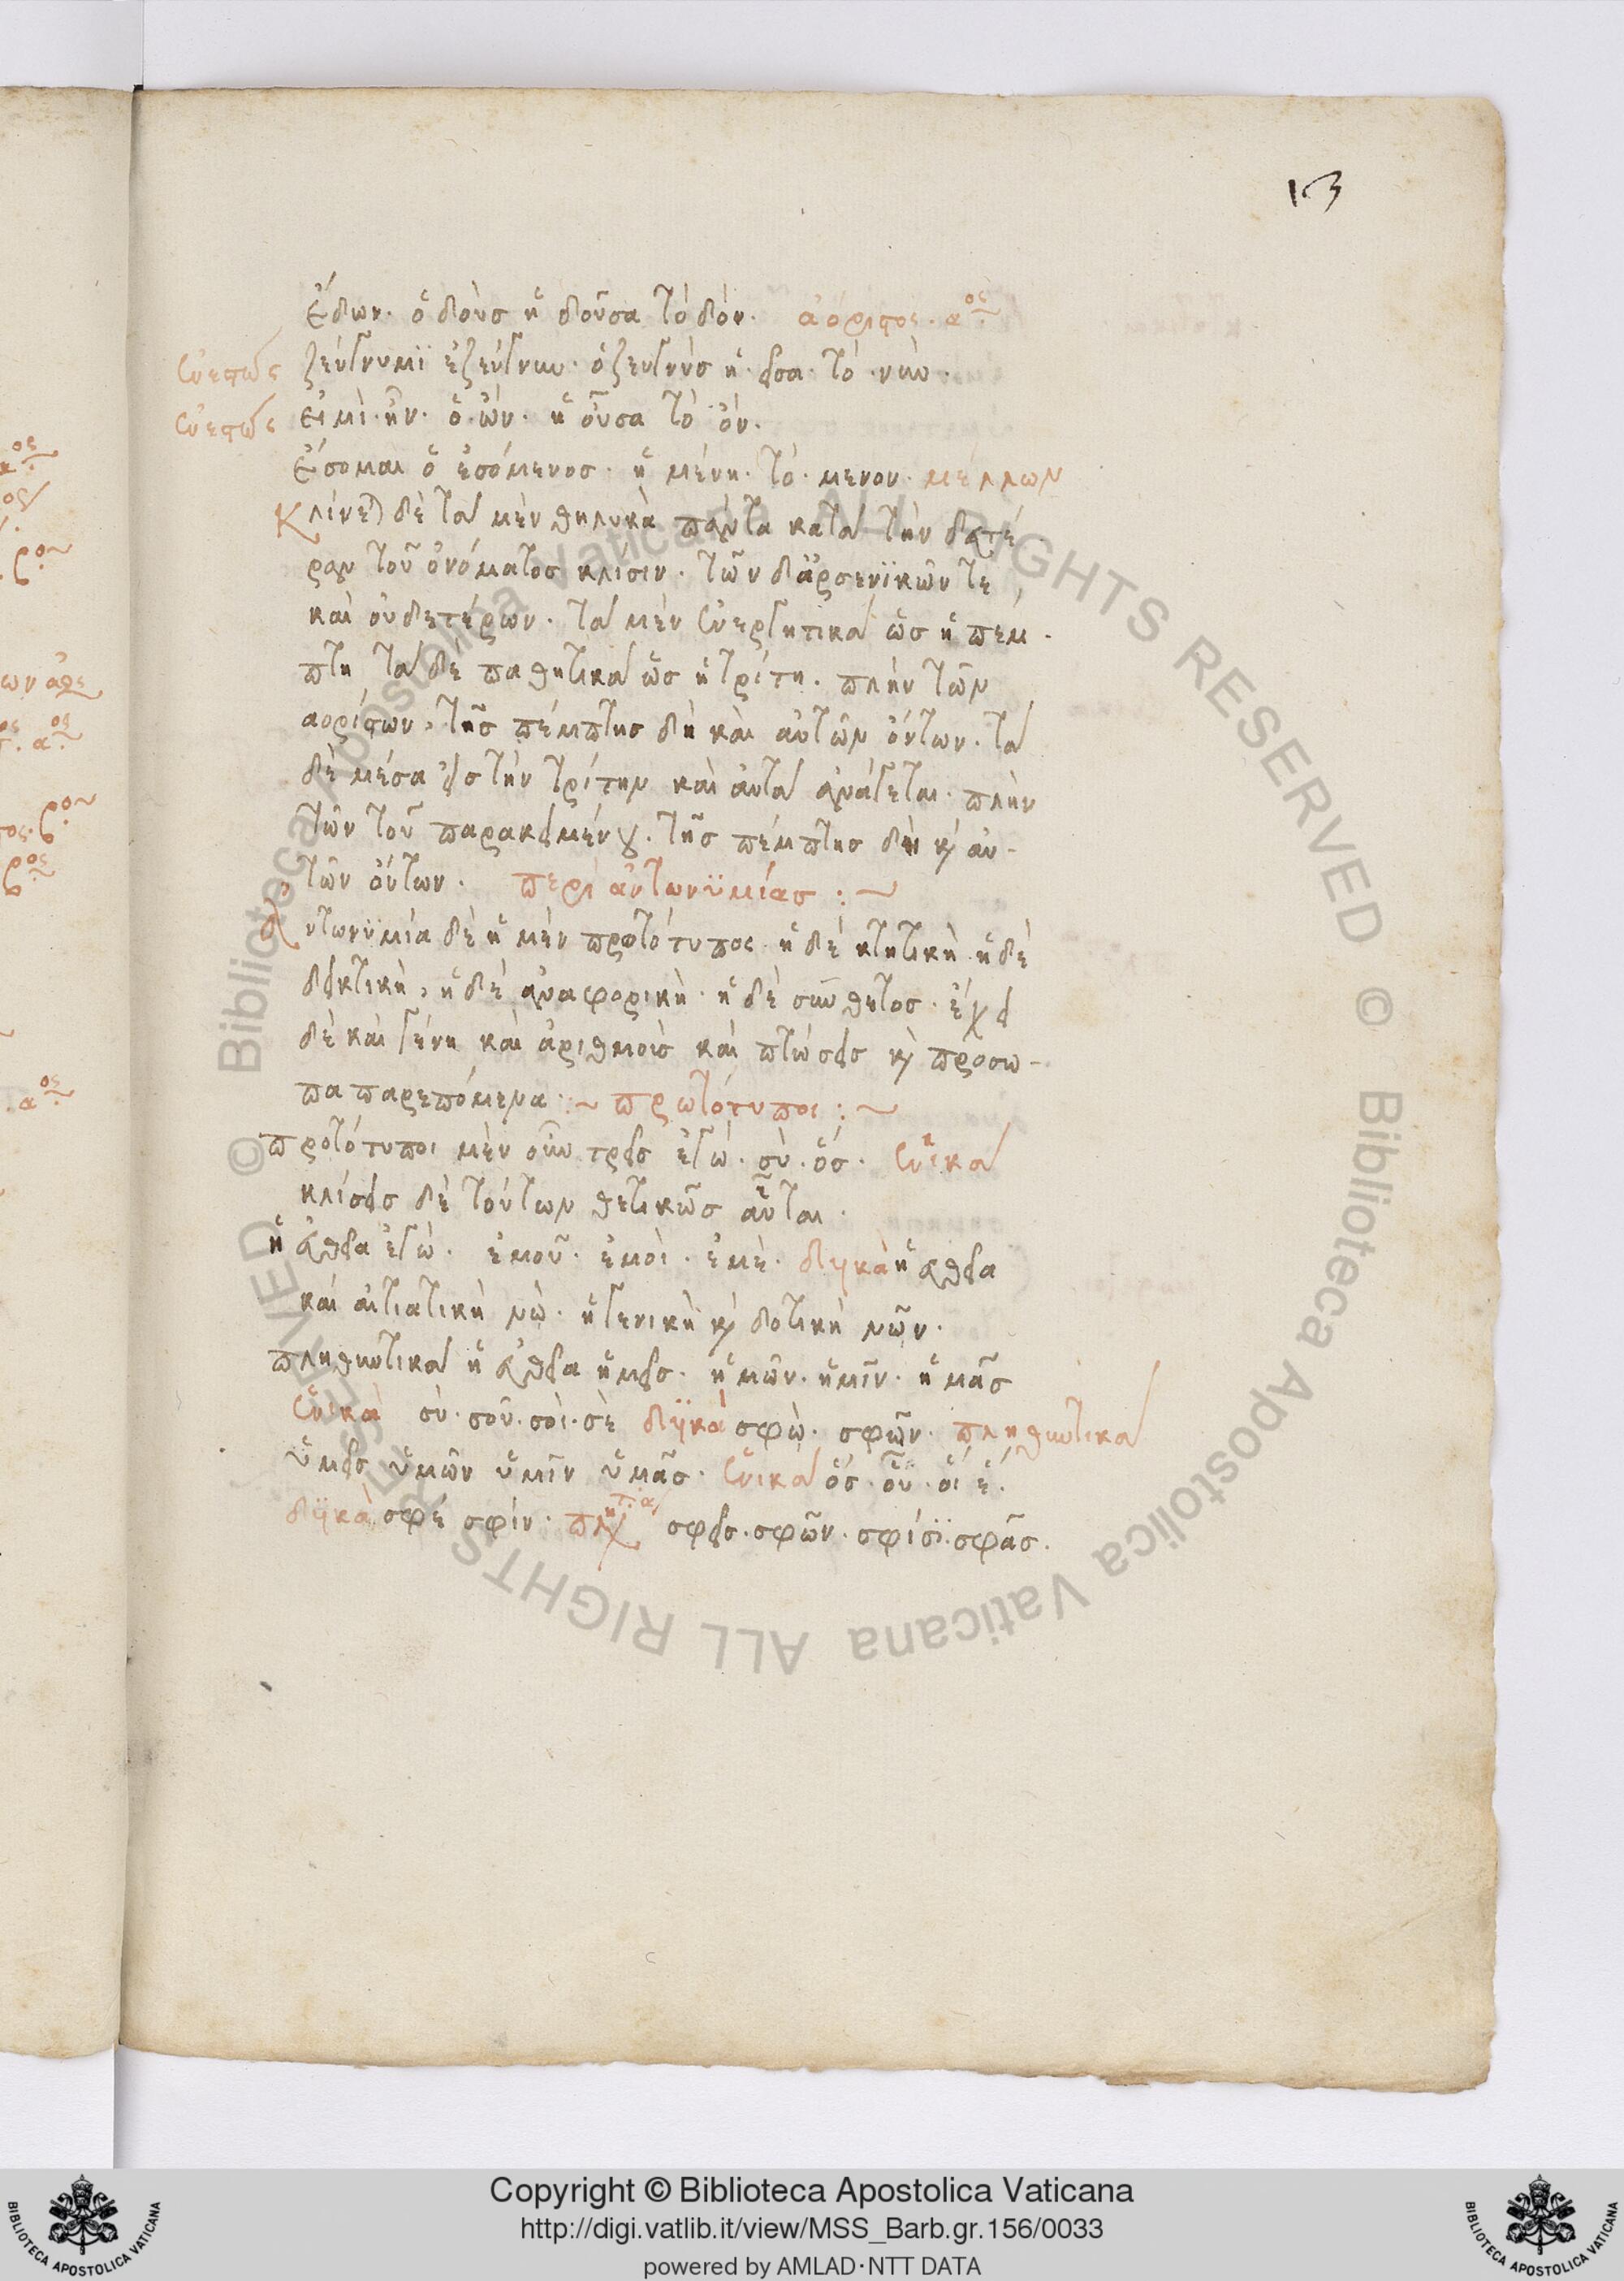 13
ἔδων. ὁ δοὺσ ἡ δοῦσα τὸ δόν. ἀόριστος. αος
ἐνεστὼς ζεύγνυμϊ ἐζεύγνυν. ὁ ζευγνὺσ ἡ. εῖσα. τὸ. νῦν.
ἐνεστὼς εἰμὶ. ἦν. ὁ ὤν. ἡ οὖσα τὸ ὄν.
ἔσομαι ὁ ἐσόμενοσ. ἡ μένη. τὸ. μενον. μέλλων
Κλίνεται δὲ τὰ μὲν θηλυκὰ πάντα κατὰ τὴν δευτέ
ραν τοῦ ὀνόματοσ κλίσιν. τῶν δ'ἀρσενϊκῶν τε
καὶ οὐδετέρων. τὰ μὲν ἐνεργητικὰ ὡσ ἡ πέμ.
πτη τὰ δὲ παθητικὰ ὡσ ἡ τρίτη. πλὴν τῶν
αορίστων, τῆσ πέμπτησ δὴ καὶ αὐτῶν ὄντων. τὰ
δὲ μέσα εἰσ τὴν τρίτην καὶ αὐτὰ ἀνάγεται. πλὴν
τῶν τοῦ παρακειμένου. τῆσ πέμπτησ δὴ κὶ αὐ-
τῶν ὄντων. περὶ ἀντωνϋμίασ :~
Ἀντωνϋμία δὲ ἡ μὲν πρωτότυπος. ἡ δὲ κτητικὴ. ἡ δὲ
δεικτικὴ, ἡ δὲ ἀναφορικὴ. ἡ δὲ σύνθετοσ. ἔχει
δὲ καὶ γένη καὶ ἀριθμοὺσ καὶ πτώσεισ κὶ πρόσω-
πα παρεπόμενα :~ πρωτότυποι :~
πρωτότυποι μὲν οὖν τρεῖσ ἐγώ. σὺ. ὅσ. ἑνικὰ
κλίσεισ δὲ τούτων θετικῶσ αὗται.
ἡ εὐθεῖα ἐγώ. ἐμοῦ. ἐμοὶ. ἐμὲ. δυϊκὰ ἡ εὐθεῖα
καὶ αἰτιατικὴ νὼ. ἡ γενικὴ κὶ δοτικὴ νῶν.
πληθυντικὰ ἡ εὐθεῖα ἡμεῖσ. ἡμῶν. ἡμῖν. ἡμᾶσ
ἑνικὰ σὺ. σοῦ. σοὶ. σὲ δυϊκὰ σφὼ. σφῶν. πληθυντικὰ
ὑμεῖσ ὑμῶν ὑμῖν ὑμᾶσ. ἑνικὰ ὅσ. οὗ. οἷ ἕ.
δυϊκὰ σφέ σφίν. πλη σφεῖσ. σφῶν. σφίσϊ. σφᾶσ.
Copyright © Biblioteca Apostolica Vaticana
http://digi.vatlib.it/view/MSS_Barb.gr.156/0033
powered by AMLAD·NTT DATA